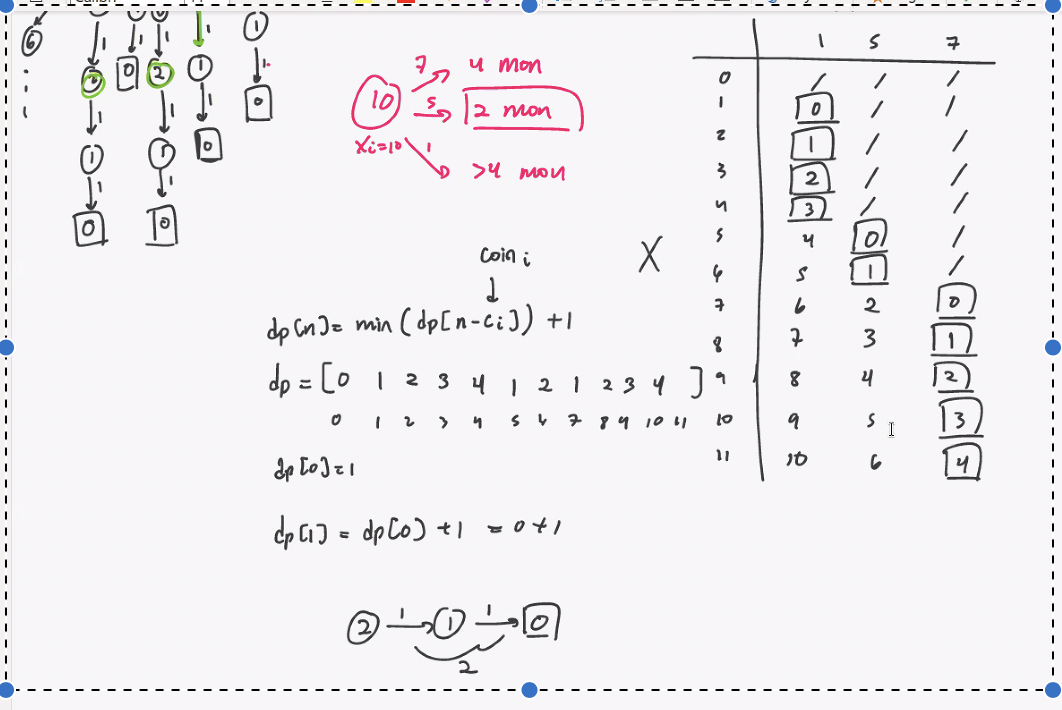 6
1 1 1 1
2 0 2 1 0
1 1 1
1 1 0
1 1
0 0
10
xi=10
7 4 mon
5 2 mon
1 >4 mon
coin i
X
dp[n]= min (dp[n-ci]) +1
dp = [0 1 2 3 4 1 2 1 2 3 4 ]
0 1 2 3 4 5 6 7 8 9 10 11
dp[0]=1
dp[1] = dp[0] +1 = 0+1
2 1 1 1 0
2
1 5 7
0 / / /
1 0 / /
2 1 / /
3 2 / /
4 3 / /
5 4 0 /
6 5 1 /
7 6 2 0
8 7 3 1
9 8 4 2
10 9 5 3
11 10 6 4